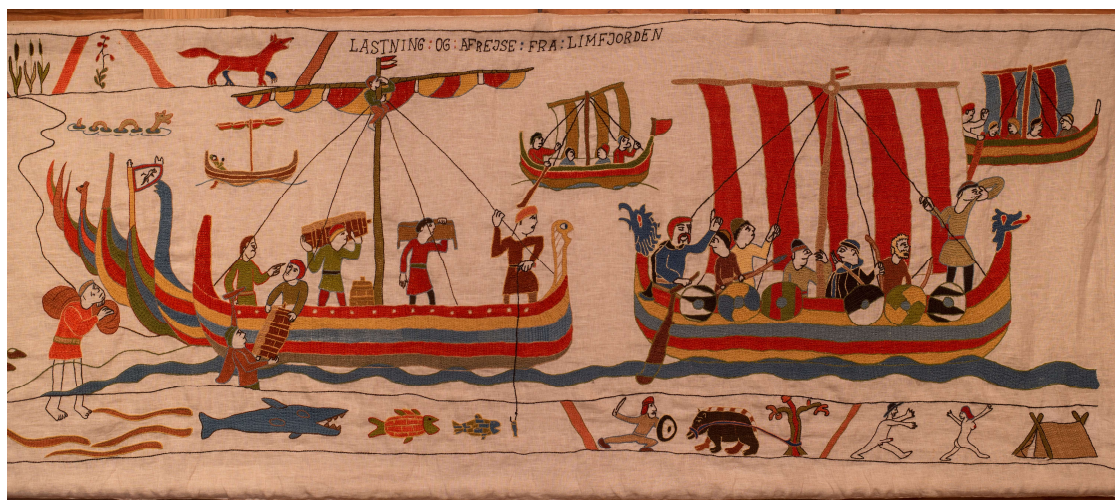 LASTNING : OG : AFREJSE : FRA : LIMFJORDEN